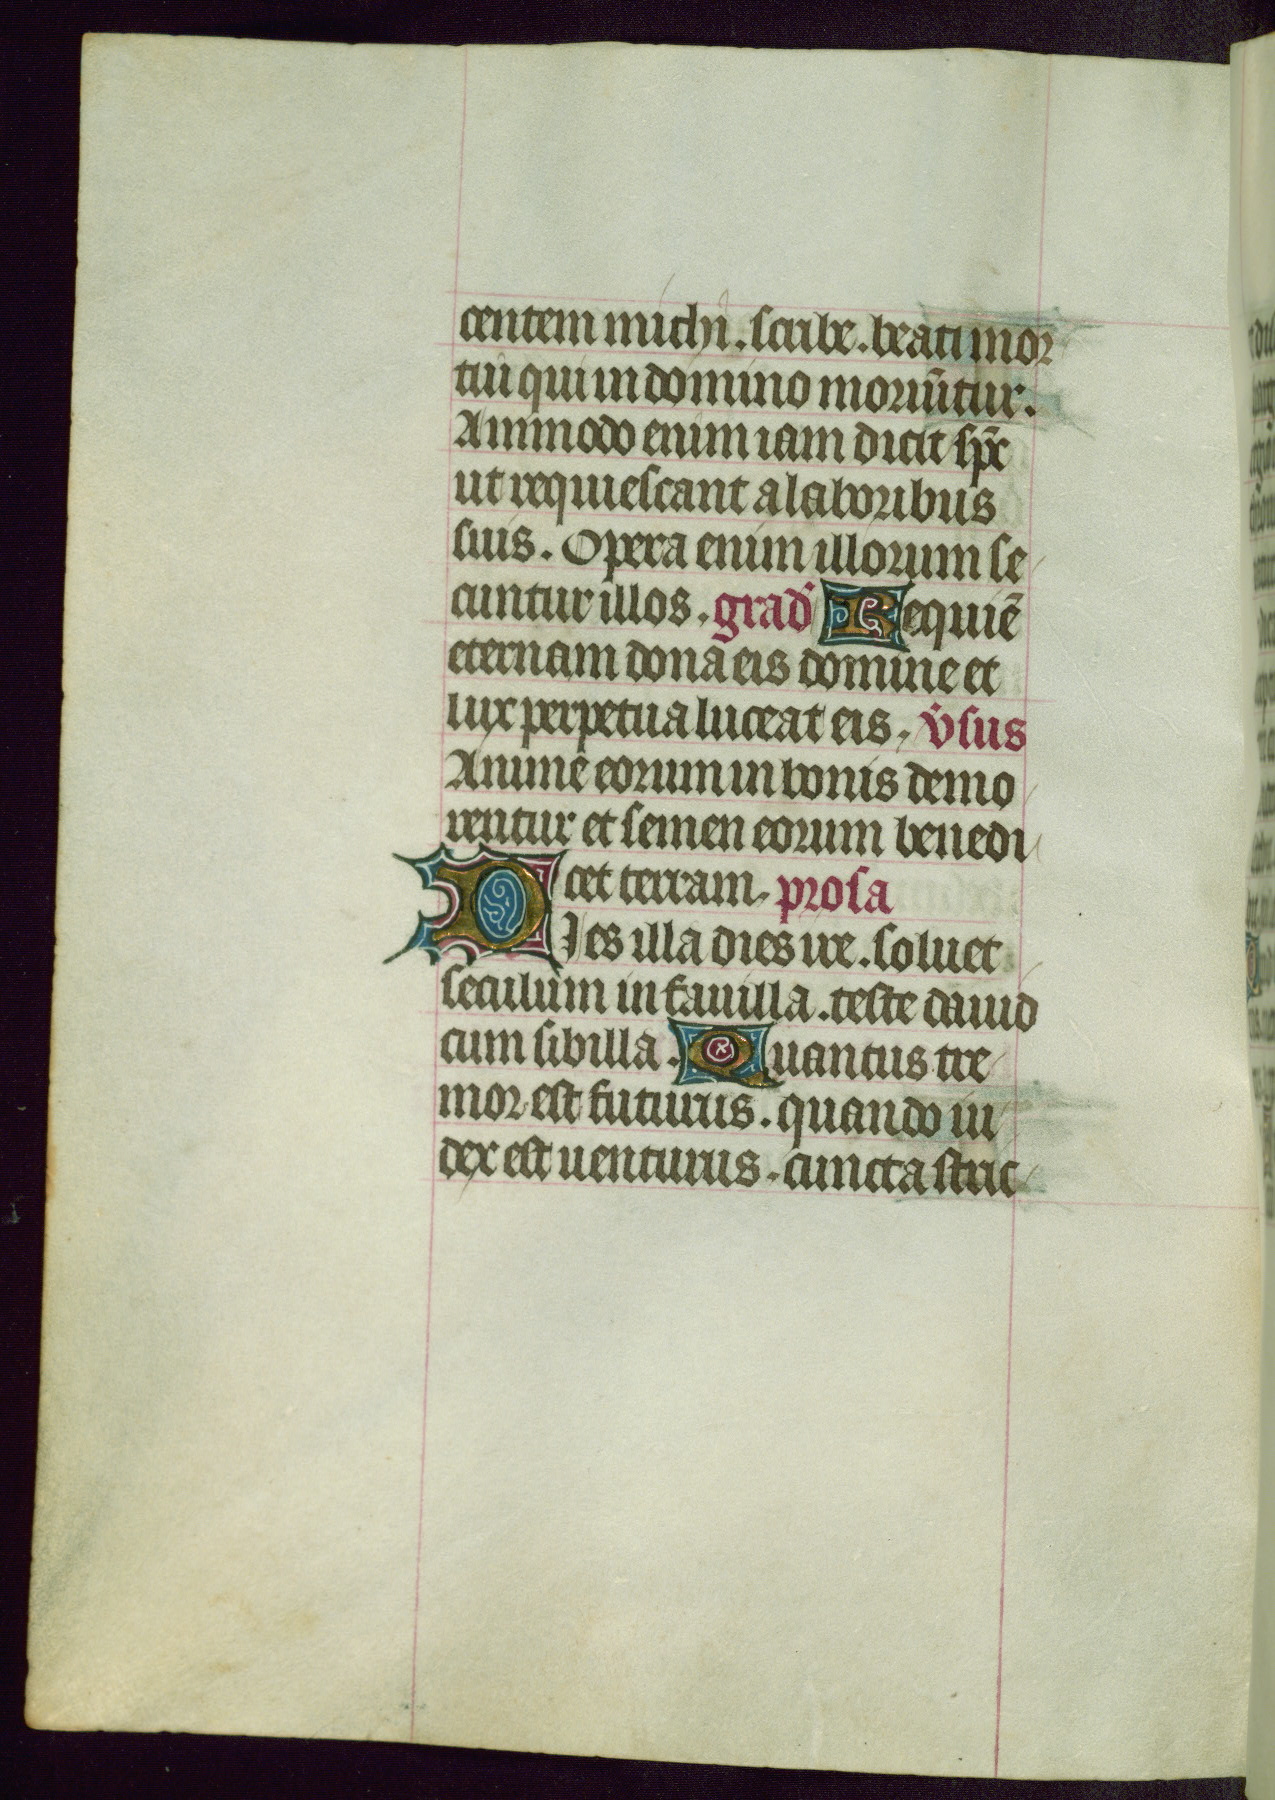 centem michi. scribe. beati mor
tui qui in domino moriu͂tur.
Ammodo enim iam dicit sp͂c
ut requiescant a laboribus
suis. Opera enim illorum se
cuntur illos. grad᷒ Requie͂
eternam dona eis domine et
lux perpetua luceat eis. v̓sus
Anime eorum in bonis demo
rentur et semen eorum benedi
cet terram. prosa
Dies illa dies ire. soluet
seculum in fauilla. teste dauid
cum sibilla. Quantus tre
mor est futurus. quando iu
dex est uenturus. cuncta stric